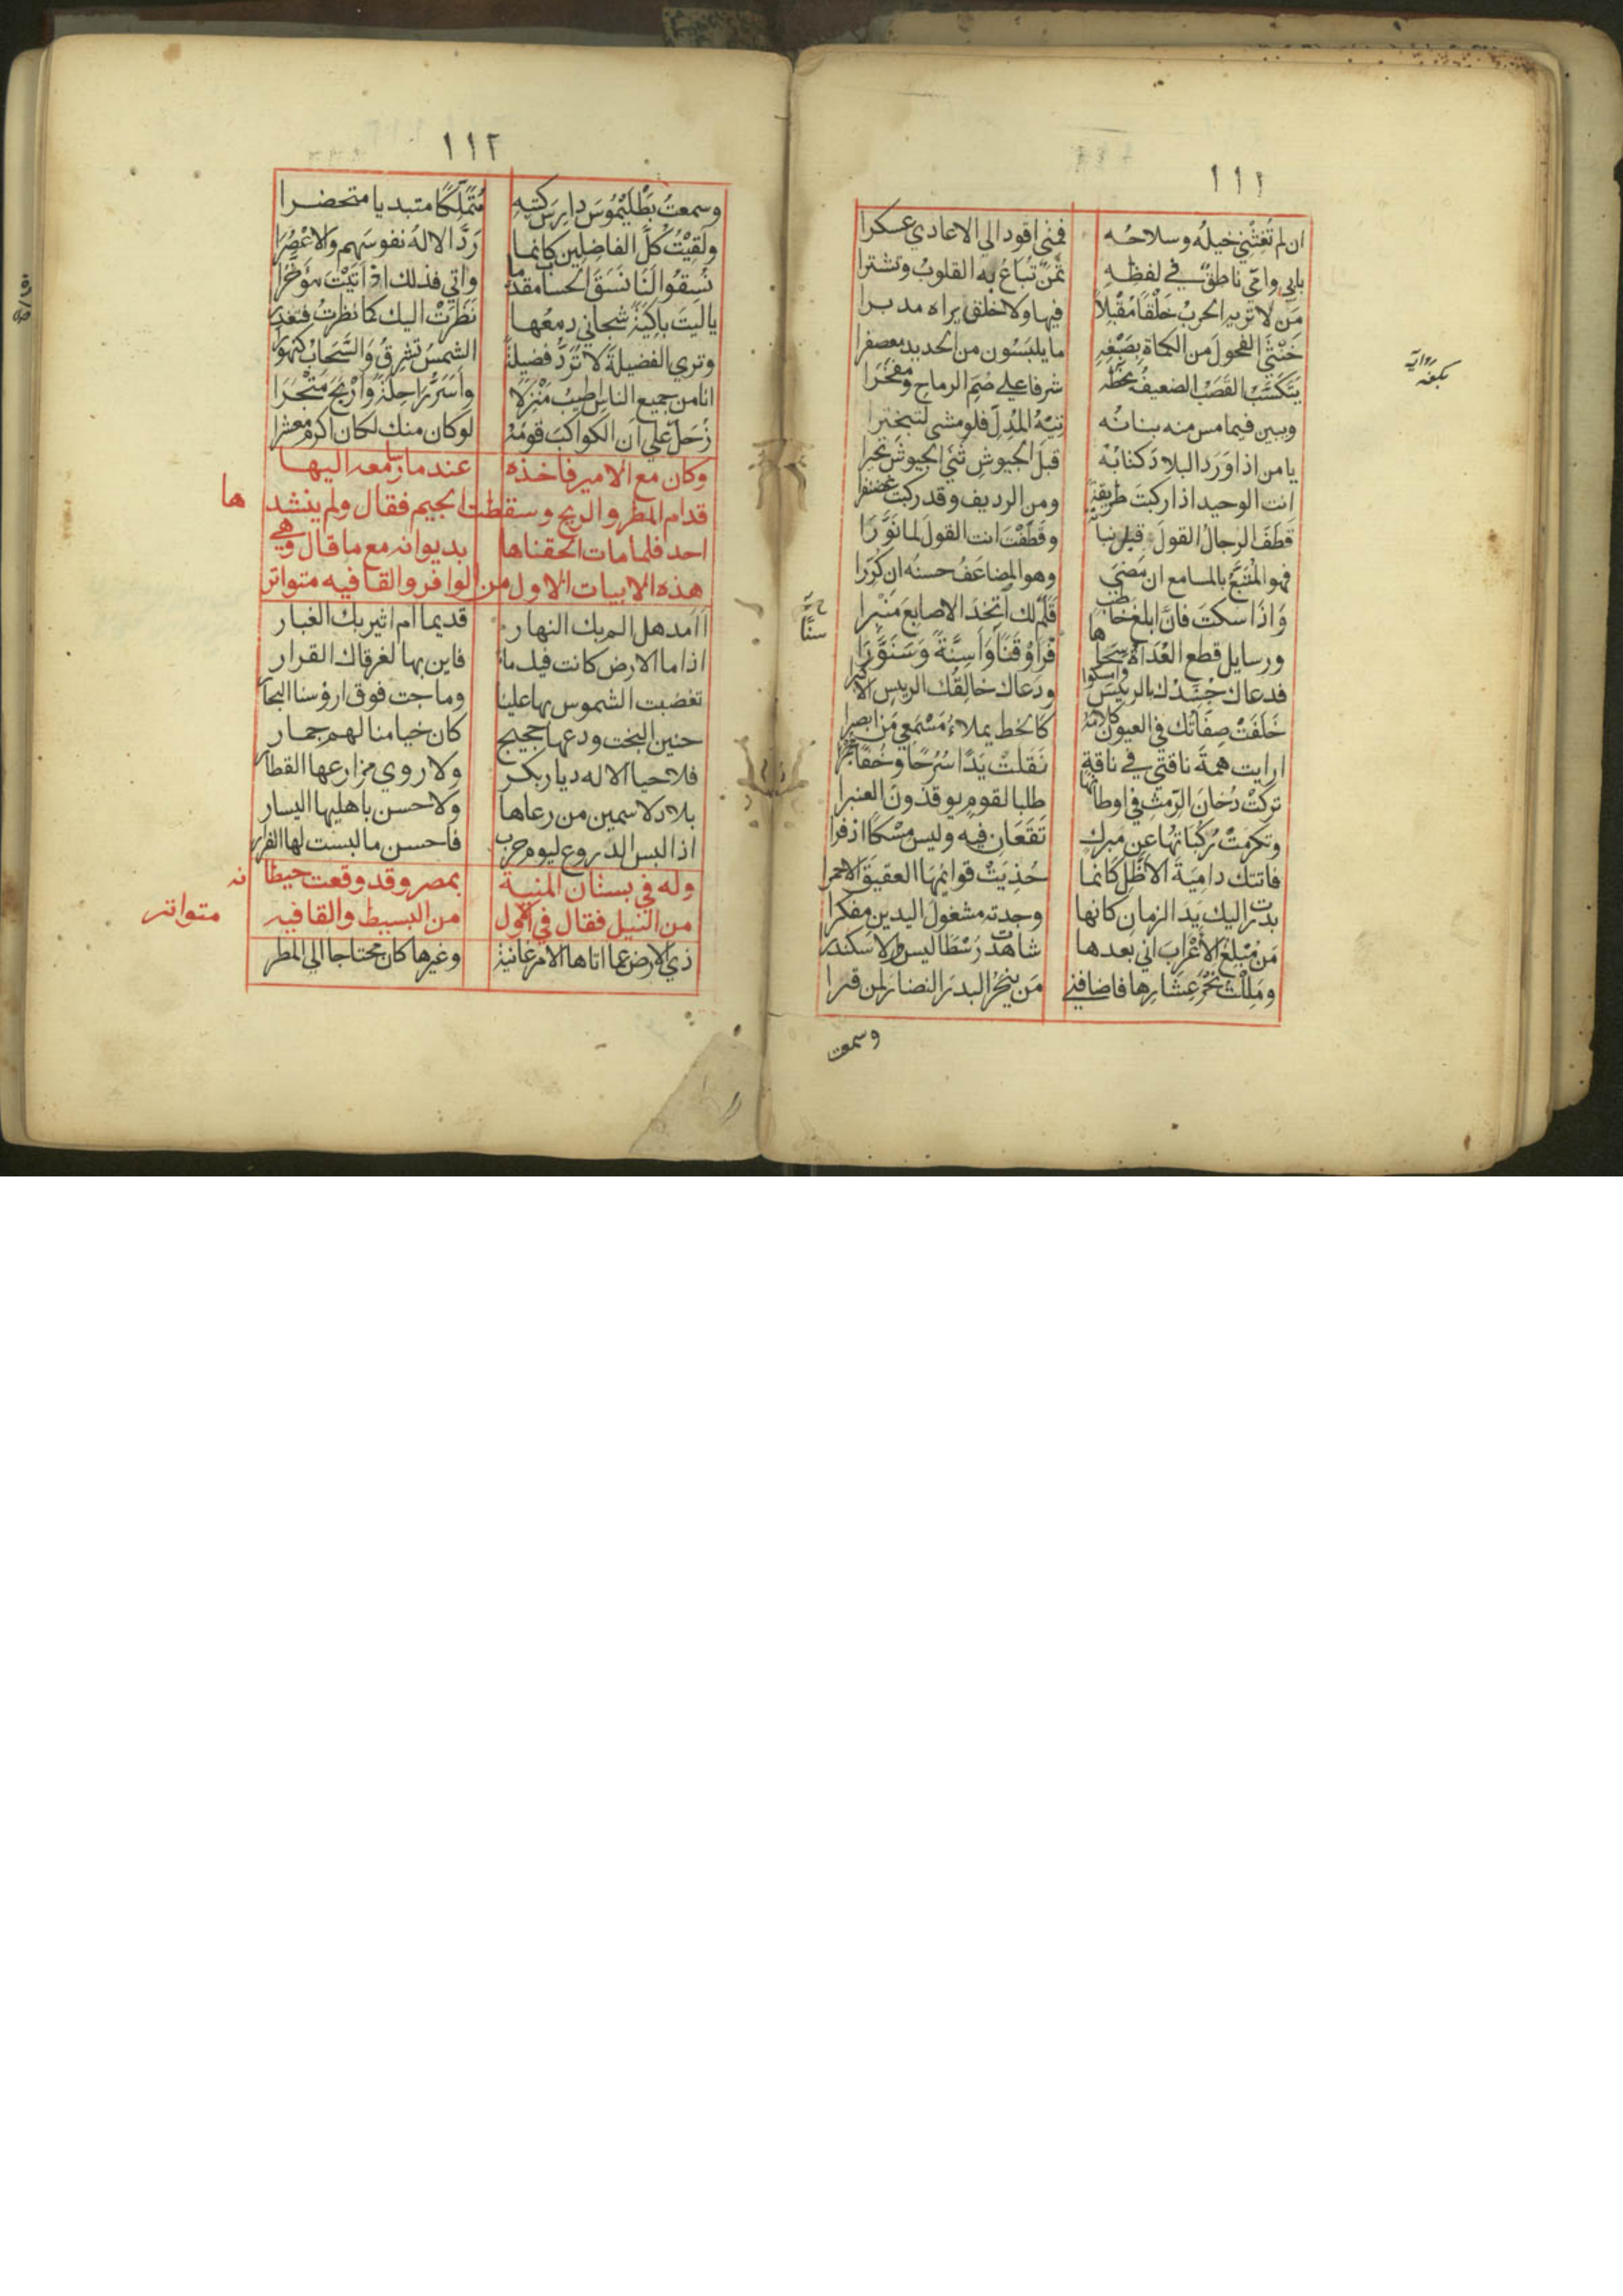 ١١١
ان لم تُغِثْني خيلُه وسلاحُه فمتى اقود الي الاعادي عسكرا
بابي وامّي ناطقٌ في لفظهِ ثمنٌ تُبَاعُ به القلوبُ وتشترا
مَن لا تريه الحربُ خَلْقًا مُقْبِلاً فيها ولا خلقٌ يراه مدبرا
خَنْثَي الفحولَ من الكماة بِصَبْغِهِ ما يلبَسُون من الحديد معصفرا
يَتَكَسَّبُ القَصَبُ الضعيفُ بخَطِّه شرفا علي صُمِّ الرماحِ ومفخَرا
ويبين فيما مس منه بنانُه تِيْهُ المُدِلِّ فلو مشي لتبخترا
يا من اذا وَرَدَ البلادَ كتابُه قبلَ الجيوشِ ثَنَي الجيوشَ تحيرا
انت الوحيد اذا ركبتَ طريقةً ومن الرديف وقد ركبت غضنفرا
قَطَفَ الرجالُ القولَ قبل نباته وقَطَفْتَ انت القولَ لما نَوَّرَا
فهو المُتَبَّعُ بالمسامع ان مَضَي وهو المضاعَفُ حسنُه ان كُرِّرا
وَاِذَا سكتَ فانَّ ابلغ خاطب قَلَمٌ لك اتَّخَذَ الاصابعَ مَنْبرا
ورسايل قطع العُدَاة سِحَاها فرَاَوْ قَنًا وَاَسِنَّةً وَسَنَوَّرَا
فدعاك حُسَّدُك بالرييس وامسكوا ودَعاك خالقُك الرييس الاكبرا
خَلَفَتْ صِفَاتُك في العيون كلامَه كالخط يملاءُ مَسْمَعي مَن ابصرا
ارايت همةَ ناقتي في ناقةٍ نَقَلتْ يَدًا سُرُحًا وخُفًّا مجمرا
تركَتْ دُخانَ الرِّمْثِ في اوطانها طلبا لقومٍ يوقدُونَ العنبرا
وتكرمَتْ رُكَبَاتُها عن مَبركٍ تَقَعَان فيه وليس مِسْكًا اذفرا
فاتتك داميَةَ الاظَلِّ كانما حُذِيَتْ قوائمُهَا العقيقَ الاحمرا
بدرت اليك يَدَ الزمانِ كانها وجدته مشغولَ اليدين مفكرا
مَن مُبْلِغُ الاَعْرَابِ اني بعدها شاهدت رَسْطَاليس والاسكندرا
ومَلِلْتُ نَحْرَ عِشَارِها فاضافني مَن ينحَرُ البدرَ النضارَ لمن قرا
وسمعت
رواية
بكفه
سنّا
١١٢
وسمعتُ بَطْليْمُوسَ دارِسَ كتبِهِ مُتَمَلِّكًا متبديا متحضرا
ولَقِيْتُ كُلَّ الفاضِلِينَ كانما رَدَّ الالاهُ نفوسَهم والاعْصُرَا
نُسِقُوا لَنَا نَسَقَ الحساب مقدما واتي فذلك اذ اَتَيْتَ مؤخَّرا
ياليت باكيَةً شجاني دمعُها نَظَرَتْ اليك كما نظرتُ فتعذرا
وتري الفضيلةَ لا تَرُدُّ فضيلةً الشمسُ تشرِقُ وَالسَّحَابُ كنهورا
انا من جميع الناس اطيبُ مَنْزِلاً وَاَسَرُّ رَاحِلَةً وَاَرْبَحُ مَتْجَرَا
زُحَلٌ علي ان الكواكبَ قومُهُ لو كان منك لكان اكرم معشرا
وكان مع الامير فاخذه عند ما رسا معه اليها
قدام المطر والريح وسقطت الجيم فقال ولم ينشدها
احد فلما مات الحقناها بديوانه مع ما قال وهي
هذه الابيات الاول من الوافر والقافيه متواتر
اامد هل الم بك النهار قديما ام اثير بك الغبار
اذا ما الارض كانت فيك ماء فاين بها لغرقاك القرار
تغضبت الشموس بها علينا وماجت فوق ارؤسنا البحار
حنين البخت ودعها حجيج كان خيامنا لهم جمار
فلا حيا الاله ديار بكر ولا روي مزارعها القطار
بلاد لا سمين من رعاها ولا حسن باهليها اليسار
اذا لبس الدروع ليوم حرب فاحسن ما لبست لها الفرار
وله في بستان المنية بمصر وقد وقعت حيطانه
من النيل فقال في الاول من البسيط والقافيه متواتر
ذي الارض عما اتاها الامر غانية وغيرها كان محتاجا الي المطر